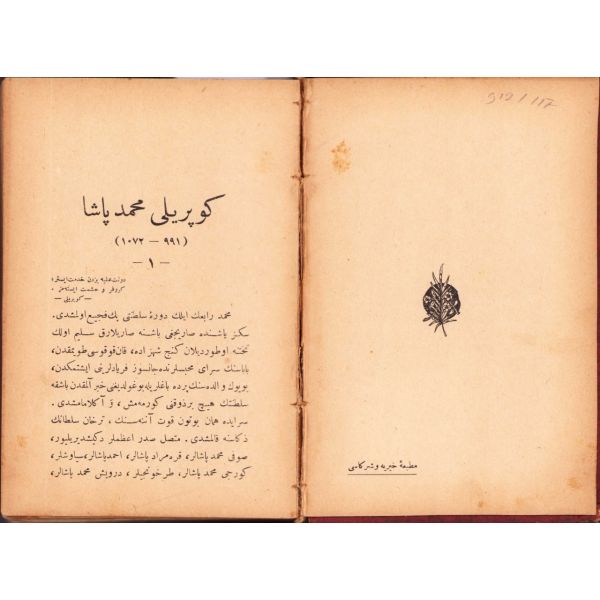 912/117
مطبعهٔ خیریه و شرکاسی
كوپریلی محمد پاشا
(۹۹۱ — ۱۰۷۲)
— ۱ —
دولت علیه بزدن خدمت ایستر؛
كروفر و حشمت ایسته‌مز .
— كوپریلی —
محمد رابعك ایلك دورۀ سلطنتی پك فجیع اولمشدی.
سكز یاشنده صاریجنی باشنه صاریلارق سلیم اولك
تختنه اوطوردیلان كنج شهزاده، قان قوقوسی طویمقدن،
باباسنك سرای محبسلرنده جانسوز فریادلرینی ایشتمكدن،
بویوك والده‌سنك پرده باغلریله بوغولدیغنی خبر آلمقدن باشقه
سلطنتك هیچ بر ذوقنی كورمه‌مش، و آكلامامشدی .
سرایده همان بوتون قوت آننه‌سنك، ترخان سلطانك
ذكاسنه قالمشدی . متصل صدر اعظملر دكیشدیریلیور،
صوفی محمد پاشالر، قره‌مراد پاشالر، احمد پاشالر، سیاوشلر،
كورجی محمد پاشالر، طرخونجیلر ، درویش محمد پاشالر،